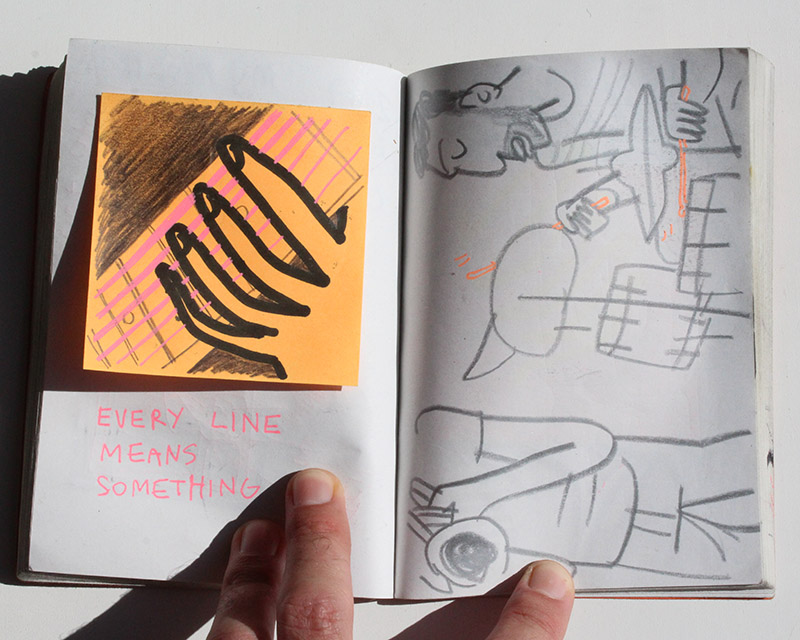 EVERY LINE
MEANS
SOMETHING